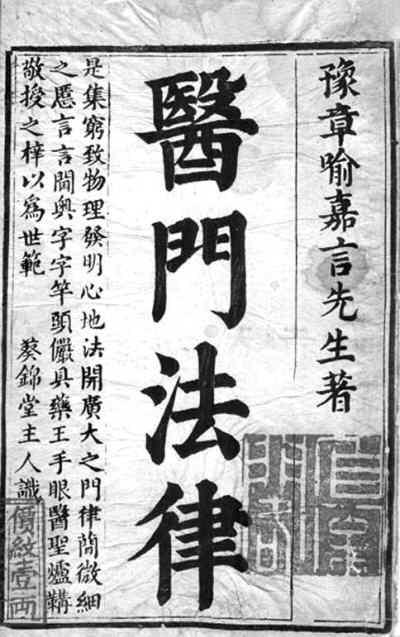 豫章喻嘉言先生著
醫門法律
是集窮致物理發明心地法開廣大之門律簡微細
之慝言言閫奧字字竿頭儼具藥王手眼醫聖爐鞴
敬授之梓以爲世範 葵錦堂主人識
價紋壹両